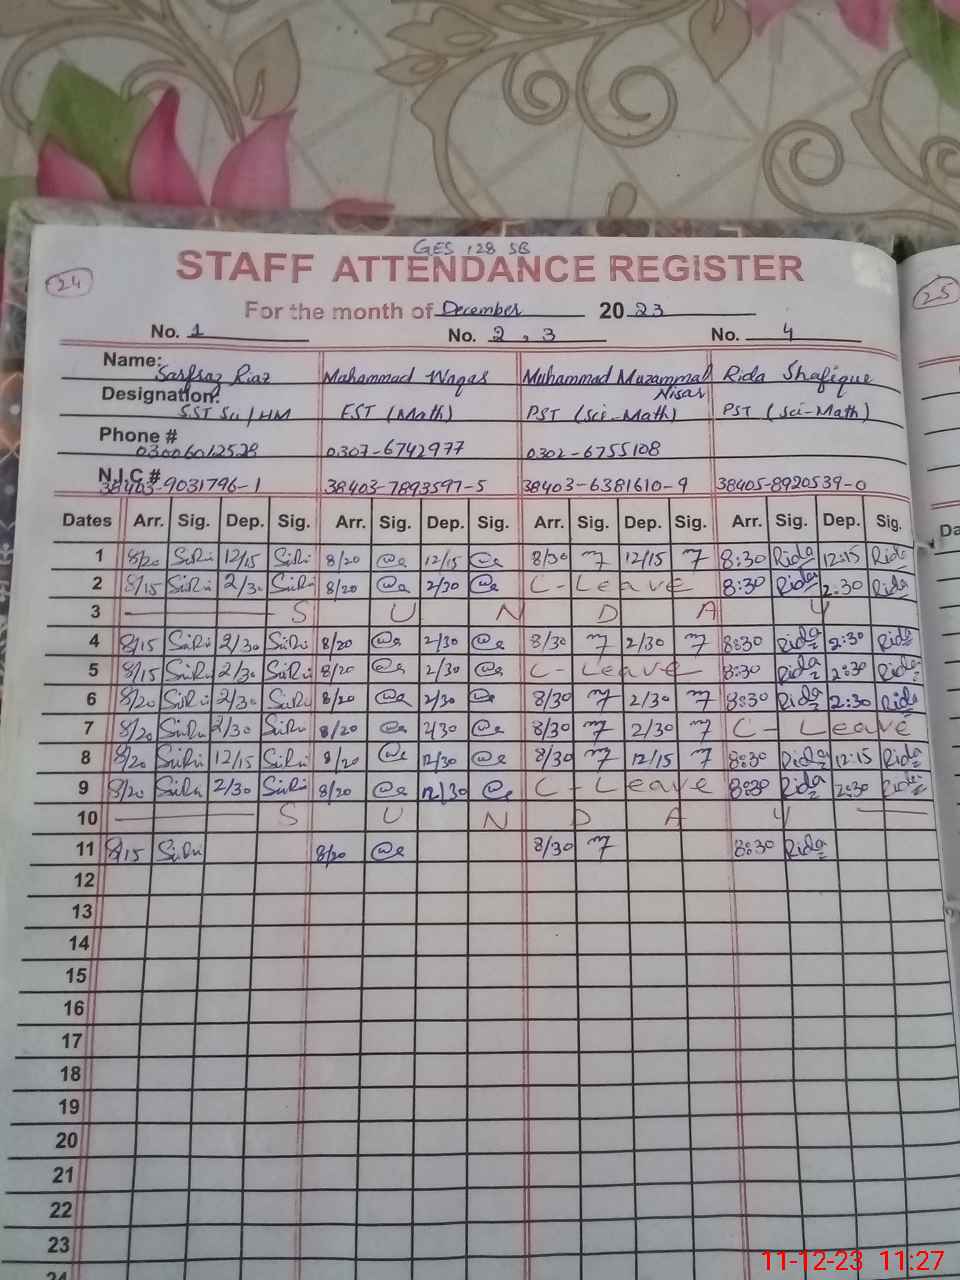 GES 128 SB
24
STAFF ATTENDANCE REGISTER
25
For the month of December 2023
No. 1 No. 2, 3 No. 4
Name: Sarfraz Riaz Muhammad Waqas Muhammad Muzammal Nisar Rida Shafique
Designation: SST Sci/HM EST (Math) PST (Sci-Math) PST (Sci-Math)
Phone # 03006012528 0307-6742977 0302-6755108
N.I.C # 38403-9031796-1 38403-7893597-5 38403-6381610-9 38405-8920539-0
Dates Arr. Sig. Dep. Sig. Arr. Sig. Dep. Sig. Arr. Sig. Dep. Sig. Arr. Sig. Dep. Sig.
Da
1 8/20 12/15 8/20 12/15 8/30 12/15 8:30 Rida 12:15 Rida
2 8/15 2/30 8/20 2/30 C-Leave 8:30 Rida 2:30 Rida
3 SUNDAY
4 8/15 2/30 8/20 2/30 8/30 2/30 8:30 Rida 2:30 Rida
5 8/15 2/30 8/20 2/30 C-Leave 8:30 Rida 2:30 Rida
6 8/20 2/30 8/20 2/30 8/30 2/30 8:30 Rida 2:30 Rida
7 8/20 2/30 8/20 2/30 8/30 2/30 C-Leave
8 8/20 12/15 8/20 12/30 8/30 12/15 8:30 Rida 12:15 Rida
9 8/20 2/30 8/20 12/30 C-Leave 8:30 Rida 2:30 Rida
10 SUNDAY
11 8/15 8/20 8/30 8:30 Rida
12
13
14
15
16
17
18
19
20
21
22
23
24
11-12-23 11:27